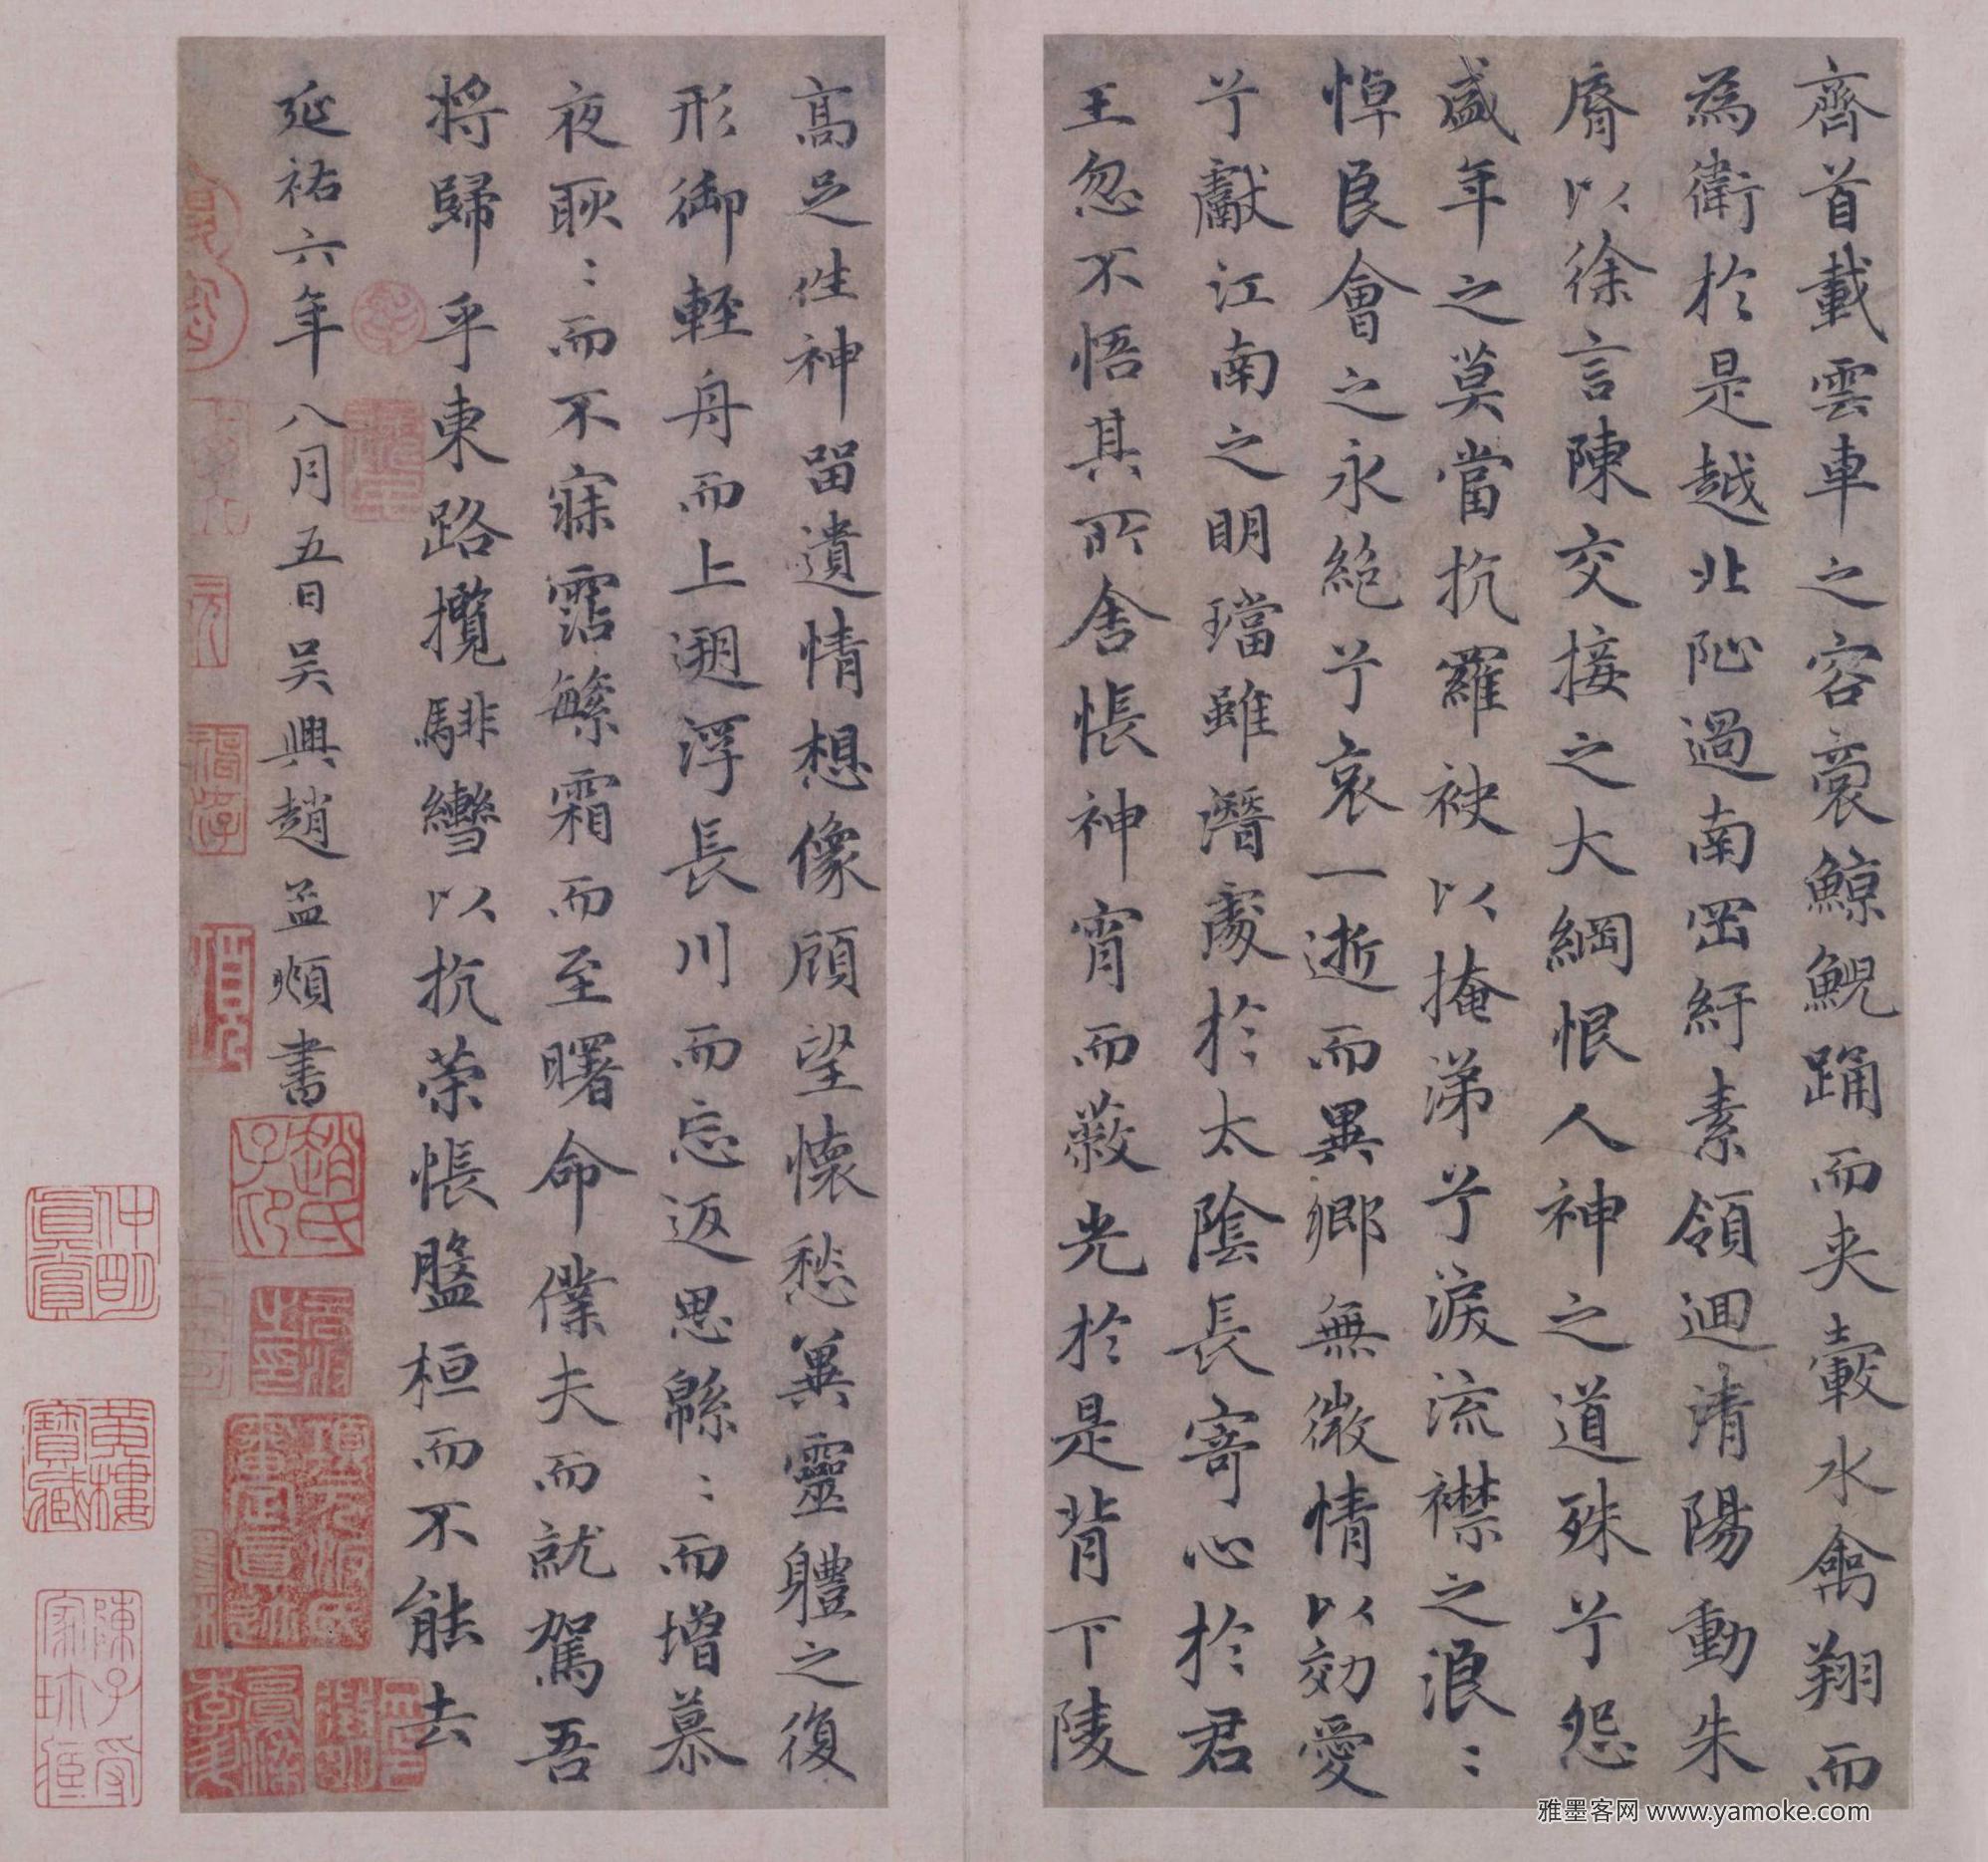 齊首載雲車之容裔鯨鯢踊而夾轂水禽翔而
為衛於是越北沚過南岡紆素領迴清陽動朱
脣以徐言陳交接之大綱恨人神之道殊兮怨
盛年之莫當抗羅袂以掩涕兮淚流襟之浪:
悼良會之永絕兮哀一逝而異鄉無微情以効愛
兮獻江南之明璫雖潛處於太陰長寄心於君
王忽不悟其所舍悵神宵而蔽光於是背下陵
高足往神留遺情想像顧望懷愁冀靈體之復
形御輕舟而上遡浮長川而忘返思緜:而增慕
夜耿:而不寐霑繁霜而至曙命僕夫而就駕吾
將歸乎東路攬騑轡以抗策悵盤桓而不能去
延祐六年八月五日吳興趙孟頫書
趙氏子印
項元汴氏審定真跡
仲明真賞
黃樓寶藏
陳子受家珍藏
雅墨客网 www.yamoke.com